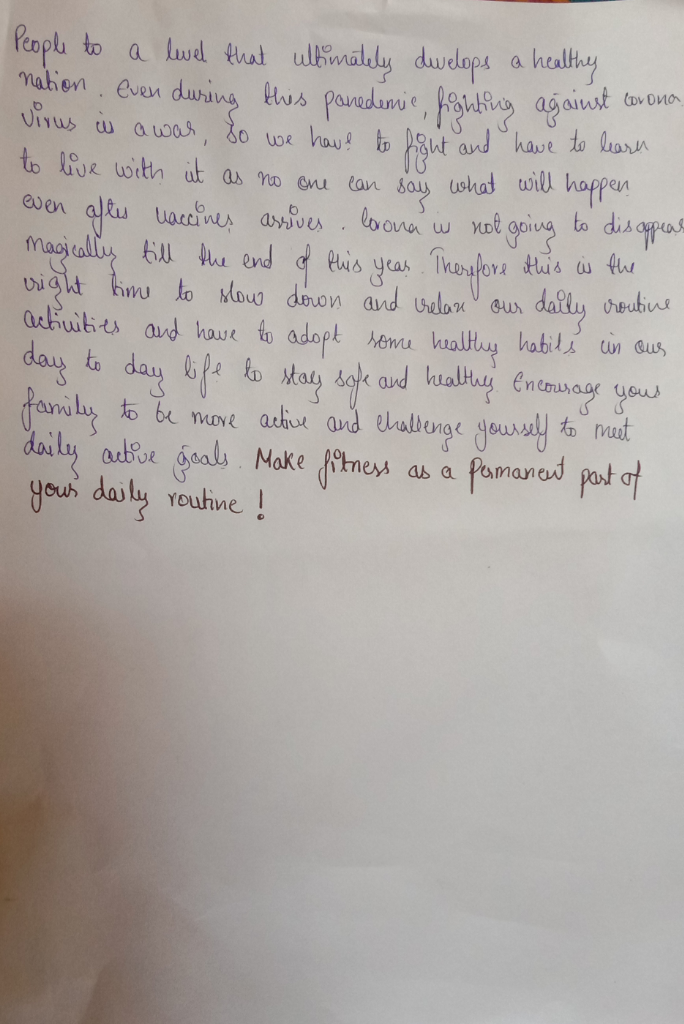 People to a level that ultimately develops a healthy
nation. Even during this panedemic, fighting against corona
virus is a war, so we have to fight and have to learn
to live with it as no one can say what will happen
even after vaccines arrives. Corona is not going to disappear
magically till the end of this year. Therefore this is the
right time to slow down and relax our daily routine
activities and have to adopt some healthy habits in our
day to day life to stay safe and healthy. Encourage your
family to be more active and challenge yourself to meet
daily active goals. Make fitness as a permanent part of
your daily routine !